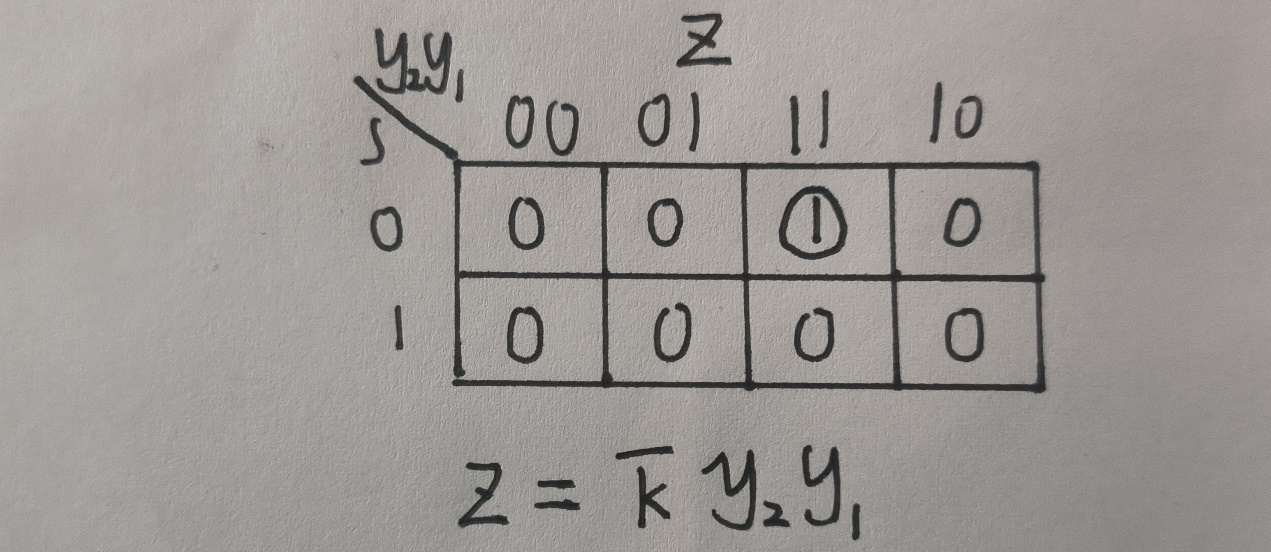 Z
y₂y₁
s 00 01 11 10
0 0 0 1 0
1 0 0 0 0
Z = k̅ y₂y₁